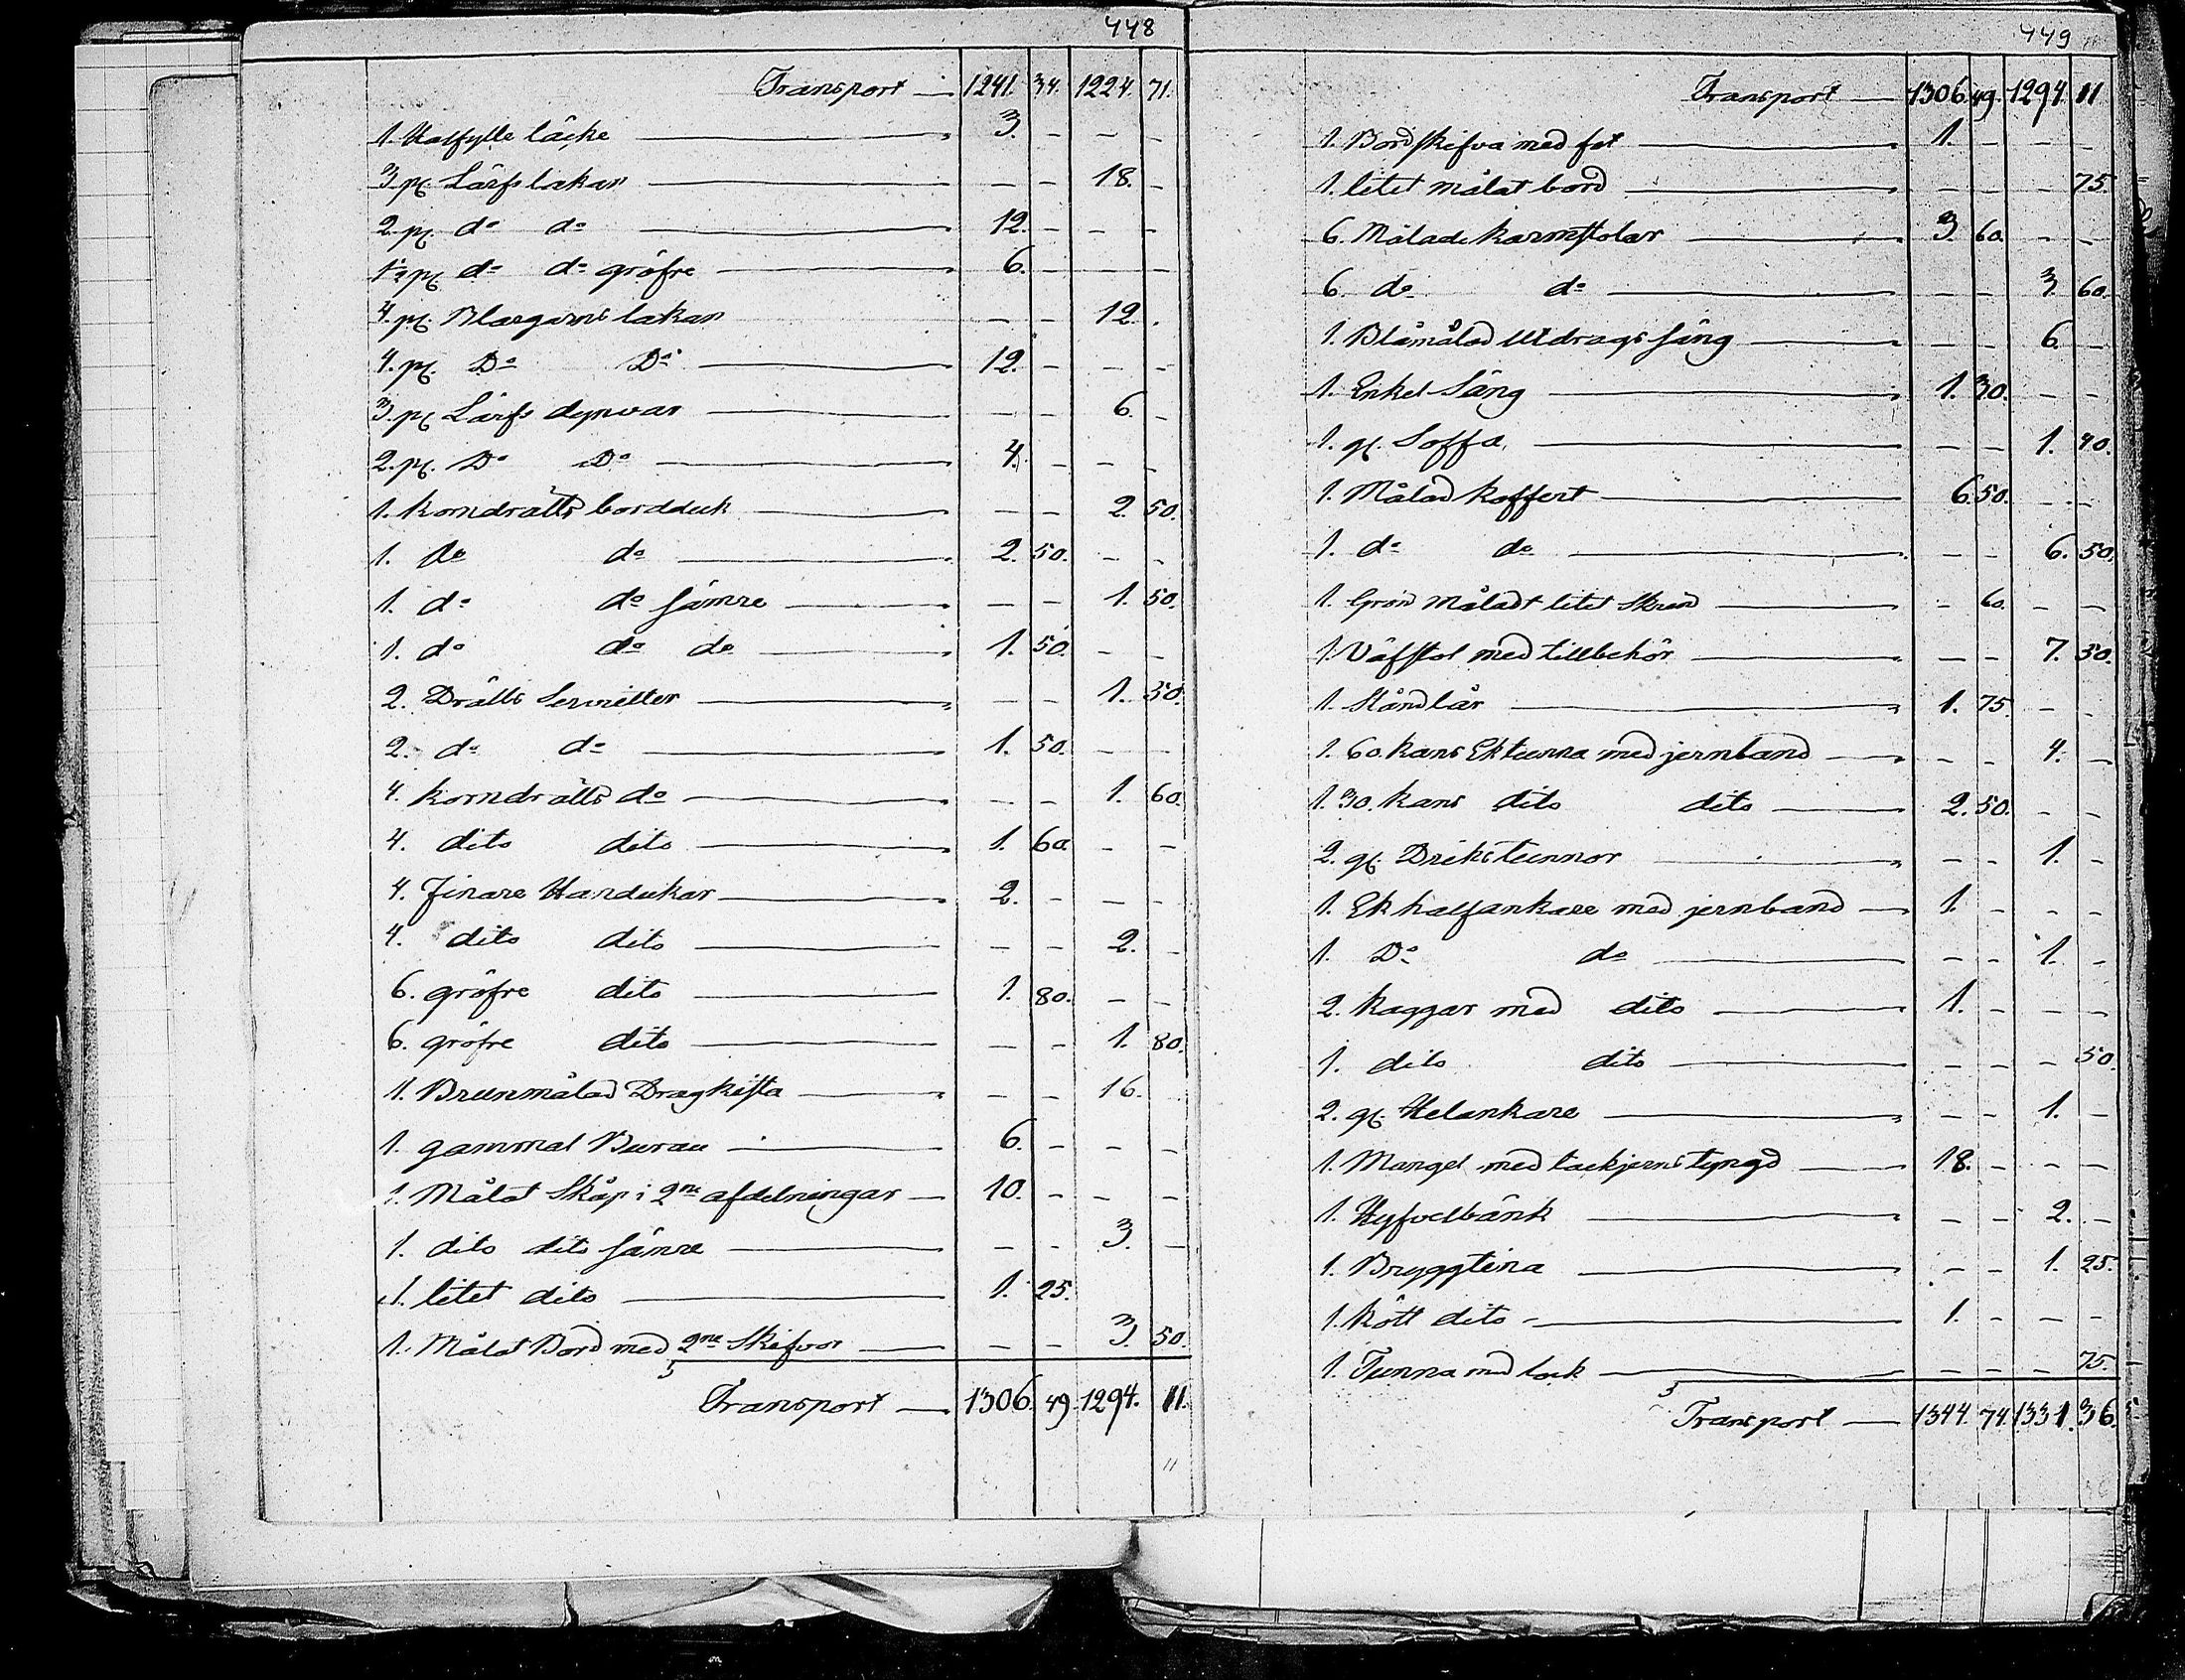 448
Transport — 1241. 34. 1224. 71.
1. Halfylle täcke — 3. - - -
3 p. Lärfslakan — - - 18. -
2. p. do do — 12. - - -
1½ p. do do gröfre — 6. - - -
4. p. Blargarns lakan — - 12. .
4. p. Do Do — 12. - - -
3. p. Lärfs dynvar — - - 6. -
2. p. Do Do — 4. - - -
1. Korndrälls bordduk — - - 2. 50.
1. do do — 2. 50. - -
1. do do sämre — - - 1. 50.
1. do do do — 1. 50. - -
2. Drälls Servietter — - - 1. 50.
2. do do — 1. 50. - -
4. Korndrälls do — - - 1. 60.
4. dito dito — 1. 60. - -
4. Finare Handukar — 2. - - -
4. dito dito — - - 2. -
6. gröfre dito — 1. 80. - -
6. gröfre dito — - - 1. 80.
1. Brunmålad Dragkista — - - 16.
1. gammal Burau — 6. - - -
1. Målat Skåp i 2ne afdelningar — 10. - - -
1. dito dito sämre — - - 3. -
1. litet dito — 1. 25.
1. Målat Bord med 2ne Skifvor — - - 3. 50.
Transport — 1306. 49. 1294. 11.
449
Transport — 1306. 49. 1294. 11
1. Bordskifva med fot — 1. - - -
1. litet målat bord — - - - 75.
6. Målade Karmstolar — 3. 60. - -
6. do do — - - 3. 60.
1. Blåmålad Utdrags säng — - - 6. -
1. Enkel Säng — 1. 30. - -
1. gl. Soffa — - - 1. 40.
1. Målad Koffert — 6. 50. - -
1. do do — - - 6. 50.
1. Grön Måladt litet Skrin — - 60. - -
1. Väfstol med tillbehör — - - 7. 50.
1. Ståndlår — 1. 75. - -
1. 60. Kans Ektunna med jernband — - - 4. -
1. 30. Kans dito dito — 2. 50. - -
2. gl. Drikstunnor — - - 1. -
1. Ek halfankare med jernband — 1. - - -
1. Do do — - - 1. -
2. Kaggar med dito — 1. - - -
1. dito dito — - - - 50.
2. gl. Helankare — - - 1. -
1. Mangel med tackjerns tyngd — 18. - - -
1. Hyfvelbänk — - - 2. -
1. Bryggtina — - - 1. 25.
1. Kött dito — 1. - - -
1. Tunna med lock — - - - 75.
Transport — 1344. 74. 1331. 36.